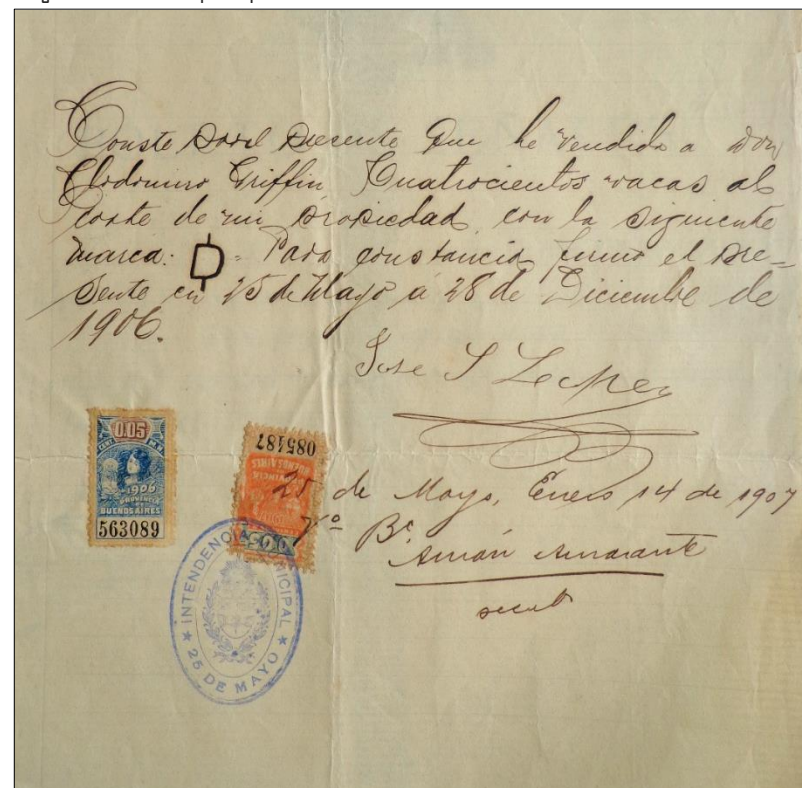 Conste por el presente que he vendido a Don
Clodomiro Griffin Cuatrocientos vacas al
corte de mi propiedad con la siguiente
marca: Para constancia firmo el pre-
sente en 25 de Mayo a 28 de Diciembre de
1906.
Jose S
0.05
CENT M.N.
1906
PROVINCIA
BUENOS AIRES
563089
085487
BUENOS AIRES
PROVINCIA
25 de Mayo, Enero 14 de 1907
Vº Bº
Amarante
INTENDENCIA MUNICIPAL
★ 25 DE MAYO ★